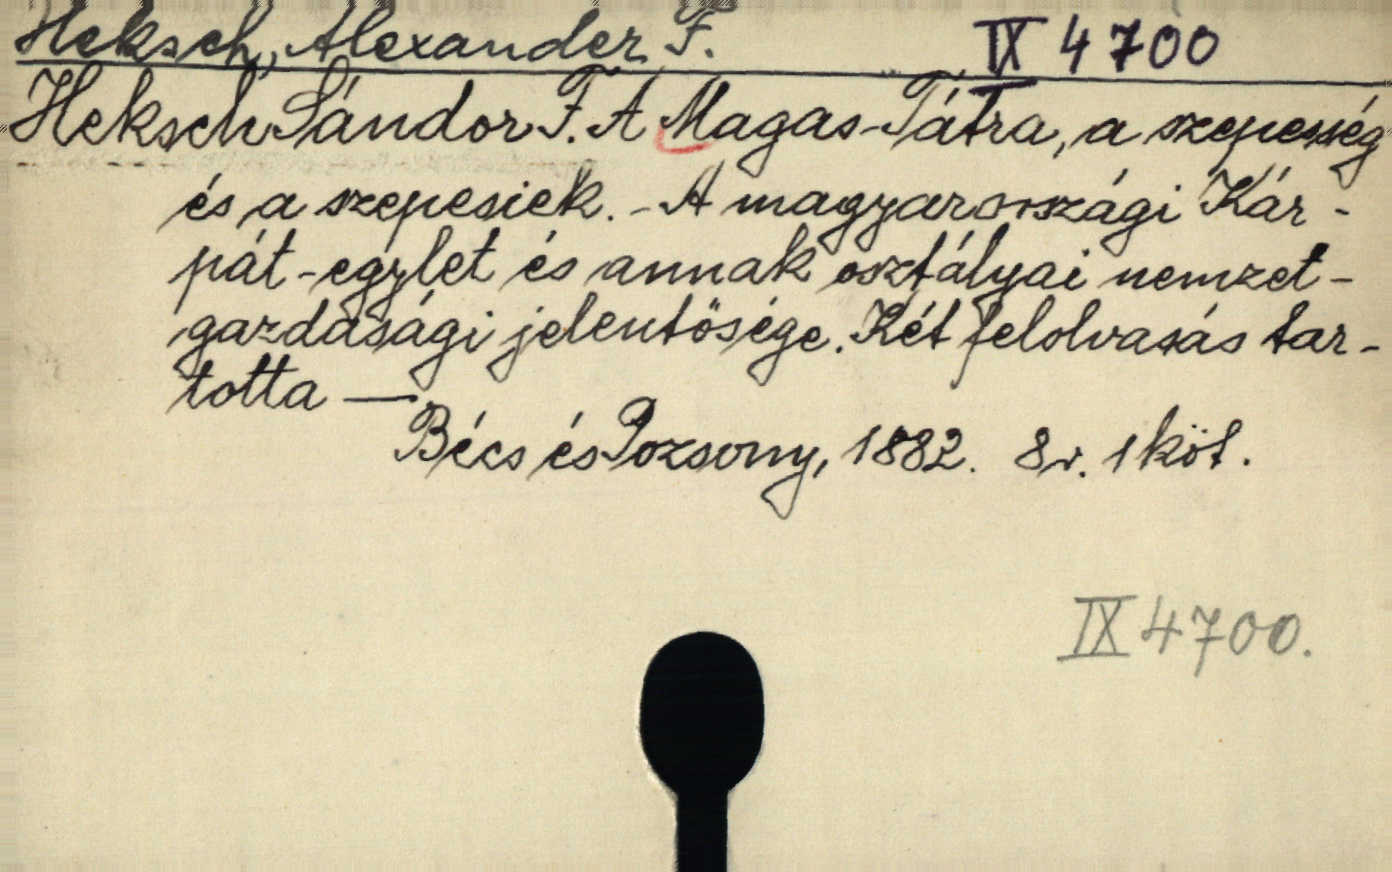 Heksch, Alexander F. IX 4700
Heksch Sándor F. A Magas-Tátra, a szepesség
és a szepesiek. - A magyarországi Kár-
pát-egylet és annak osztályai nemzet-
gazdasági jelentősége. Két felolvasás tar-
totta —.
Bécs és Pozsony, 1882. 8r. 1 köt.
IX 4700.